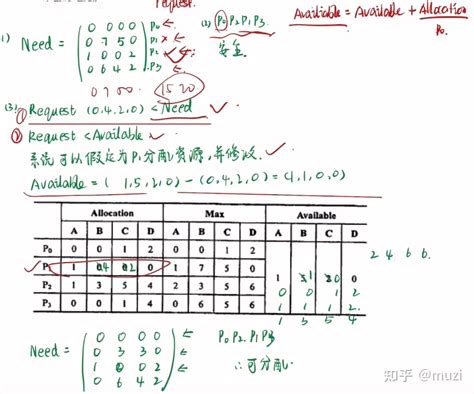 request.
Available = Available + Allocation
P₀
1)
Need =
0 0 0 0 P₀
0 7 5 0 P₁ ×
1 0 0 2 P₂
0 6 4 2 P₃
(2) P₀ P₂ P₁ P₃
安全
0 7 0 0
1 5 2 0
(3) ① Request (0,4,2,0) < Need ✓
② Request < Available ✓
系统可以假定为P₁分配资源,并修改. ✓
Available = ( 1,5,2,0) - (0,4,2,0) = (1,1,0,0)
Allocation Max Available
A B C D A B C D A B C D
P₀ 0 0 1 2 0 0 1 2
2 4 6 6
P₁ 1 0 7 5 0
1 7 5 0
P₂ 1 3 5 4 2 3 5 6
0 0 1 2
1 1 1 2
P₃ 0 0 1 4 0 6 5 6
1 3 5 4
Need =
0 0 0 0
0 3 3 0
1 0 0 2
0 6 4 2
P₀ P₂ P₁ P₃
∴可分配.
知乎 @muzi